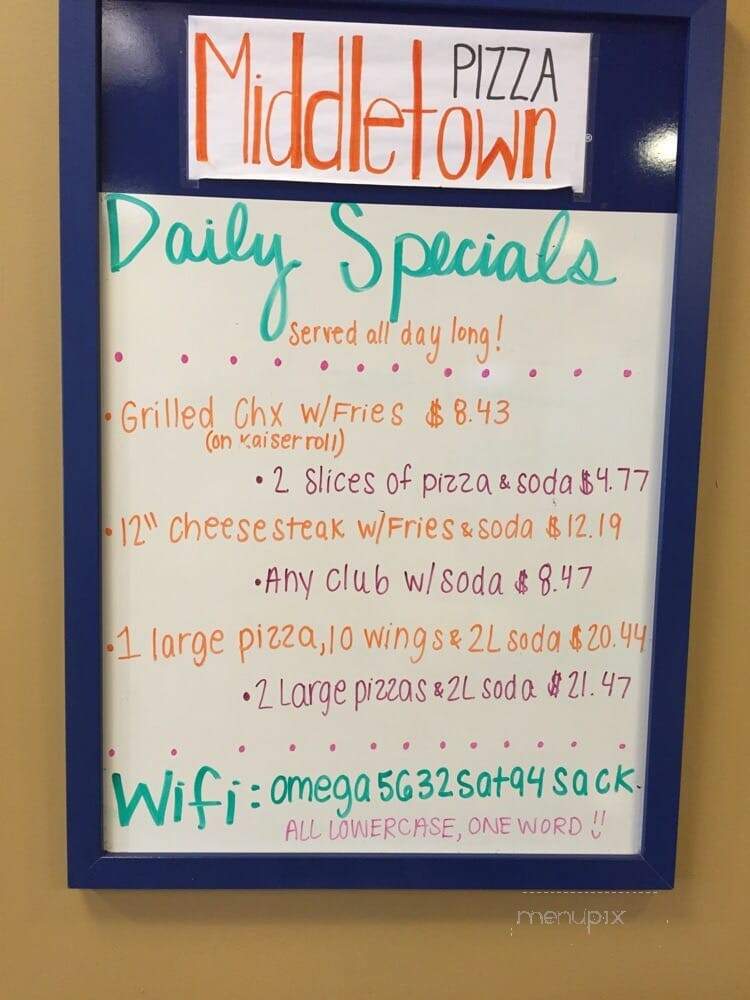 PIZZA
Middletown
Daily Specials
Served all day long!
• Grilled Chx w/Fries $8.43
(on Kaiser roll)
• 2 Slices of pizza & soda $4.77
• 12" Cheesesteak w/Fries & soda $12.19
• Any Club w/soda $8.47
• 1 large pizza, 10 wings & 2L soda $20.44
• 2 Large pizzas & 2L soda $21.47
Wifi: omega5632sat94sack.
ALL LOWERCASE, ONE WORD !!
menupix